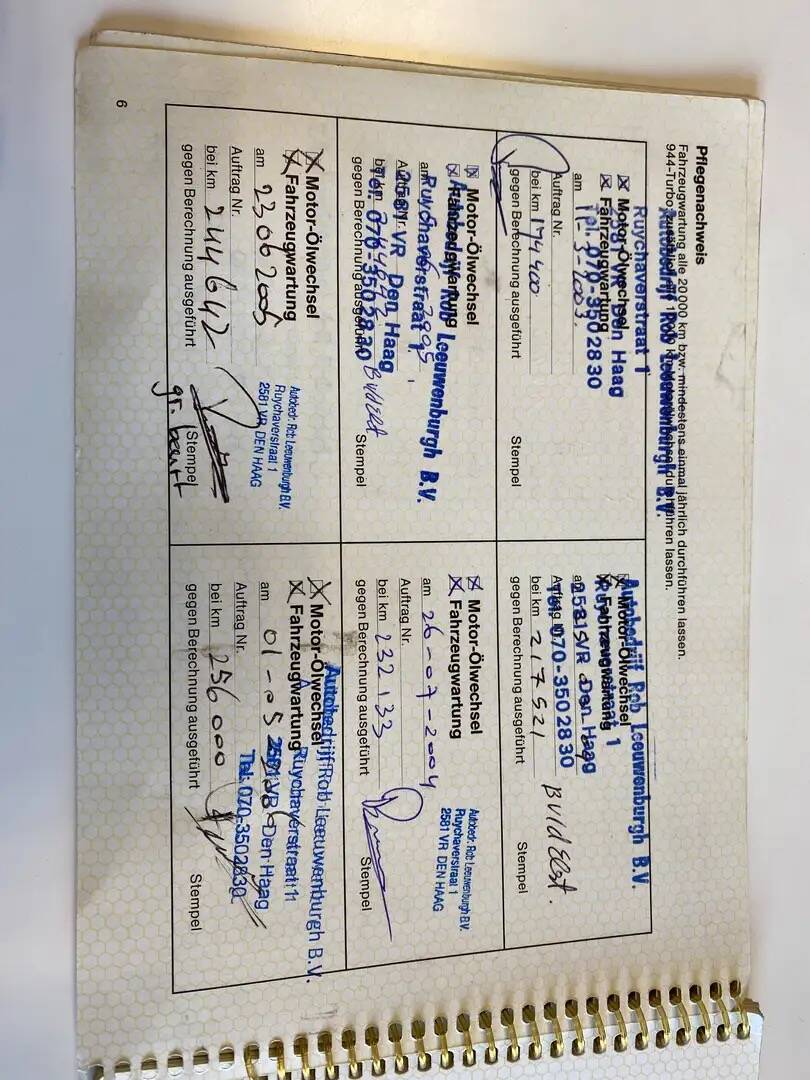 Pflegenachweis
Fahrzeugwartung alle 20 000 km bzw. mindestens einmal jährlich durchführen lassen.
944-Turbo durchführen lassen.
Autobedrijf Rob Leeuwenburgh B.V.
Ruychaverstraat 1
Den Haag
Tel. 070-3502830
Motor-Ölwechsel
Fahrzeugwartung
am 11-3-2003.
Auftrag Nr.
bei km 174400
gegen Berechnung ausgeführt
Stempel
Autobedrijf Rob Leeuwenburgh B.V.
Ruychaverstraat 1
2581 VR Den Haag
Tel. 070-3502830
Motor-Ölwechsel
Fahrzeugwartung
am
Auftrag Nr.
bei km 217521
gegen Berechnung ausgeführt
Stempel
Motor-Ölwechsel
Fahrzeugwartung
am
Auftrag Nr.
bei km
gegen Berechnung ausgeführt
Autobedrijf Rob Leeuwenburgh B.V.
Ruychaverstraat 1
2581 VR Den Haag
Tel. 070-3502830
Stempel
Motor-Ölwechsel
Fahrzeugwartung
am 26-07-2004
Auftrag Nr.
bei km 232133
gegen Berechnung ausgeführt
Autobedr. Rob Leeuwenburgh B.V.
Ruychaverstraat 1
2581 VR DEN HAAG
Stempel
Motor-Ölwechsel
Fahrzeugwartung
am 23062005
Auftrag Nr.
bei km 244642
gegen Berechnung ausgeführt
Autobedr. Rob Leeuwenburgh B.V.
Ruychaverstraat 1
2581 VR DEN HAAG
Stempel
gr. beurt
Motor-Ölwechsel
Fahrzeugwartung
am 01-05
Auftrag Nr.
bei km 256000
gegen Berechnung ausgeführt
Autobedrijf Rob Leeuwenburgh B.V.
Ruychaverstraat 1
2581 VR Den Haag
Tel. 070-3502830
Stempel
6